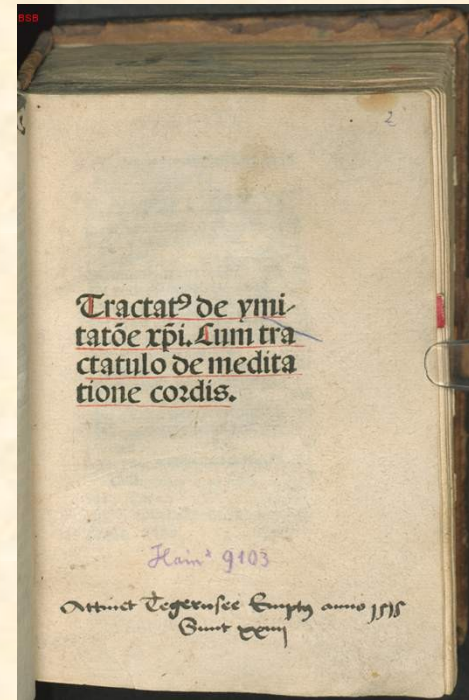 BSB
2
Tractatꝰ de ymi
tatõe xp̄i. Cum tra
ctatulo de medita
tione cordis.
Hain* 9103
Attinet Tegernsee Emptꝰ anno 1515
Sunt xxiiij